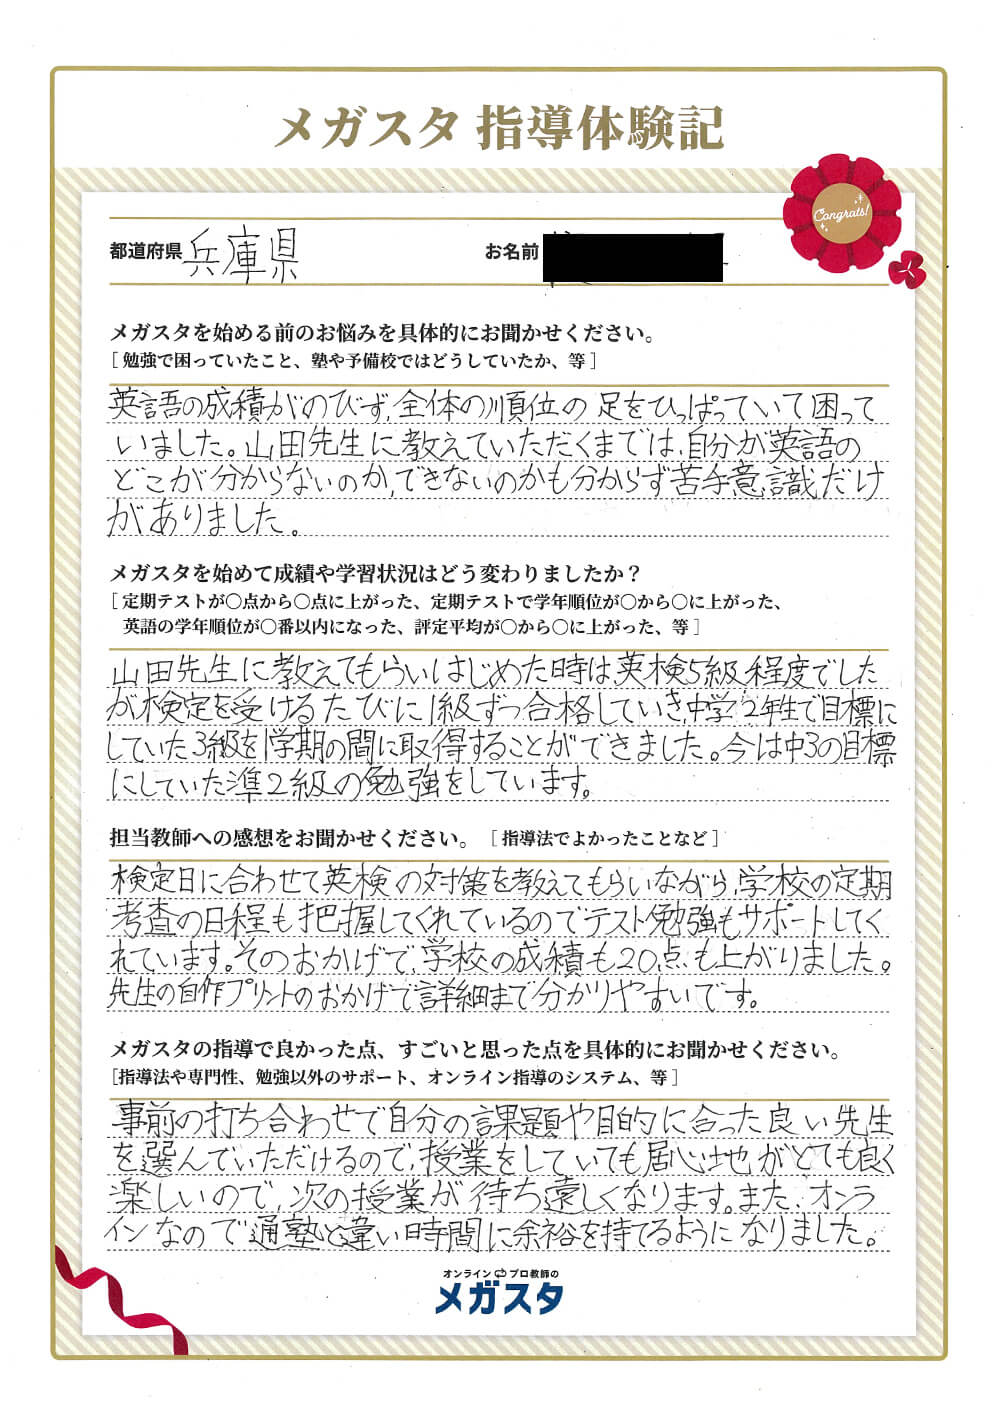 メガスタ 指導体験記
Congrats!
都道府県 兵庫県 お名前
メガスタを始める前のお悩みを具体的にお聞かせください。
[ 勉強で困っていたこと、塾や予備校ではどうしていたか、等 ]
英語の成積がのびず,全体の順位の足をひっぱっていて困って
いました。山田先生に教えていただくまでは,自分が英語の
どこが分からないのか,できないのかも分からず苦手意識だけ
がありました。
メガスタを始めて成績や学習状況はどう変わりましたか？
[ 定期テストが〇点から〇点に上がった、定期テストで学年順位が〇から〇に上がった、
英語の学年順位が〇番以内になった、評定平均が〇から〇に上がった、等 ]
山田先生に教えてもらいはじめた時は,英検5級程度でした
が検定を受けるたびに1級ずつ合格していき,中学2年生で目標に
していた3級を1学期の間に取得することができました。今は中3の目標
にしていた準2級の勉強をしています。
担当教師への感想をお聞かせください。 [ 指導法でよかったことなど ]
検定日に合わせて英検の対策を教えてもらいながら,学校の定期
考査の日程も把握してくれているのでテスト勉強もサポートしてく
れています。そのおかげで,学校の成積も20点も上がりました。
先生の自作プリントのおかげで詳細まで分かりやすいです。
メガスタの指導で良かった点、すごいと思った点を具体的にお聞かせください。
[指導法や専門性、勉強以外のサポート、オンライン指導のシステム、等 ]
事前の打ち合わせで自分の課題や目的に合った良い先生
を選んでいただけるので,授業をしていても居心地がとても良く
楽しいので,次の授業が待ち遠しくなります。また,オンラ
インなので通塾と違い時間に余裕を持てるようになりました。
オンライン プロ教師の
メガスタ